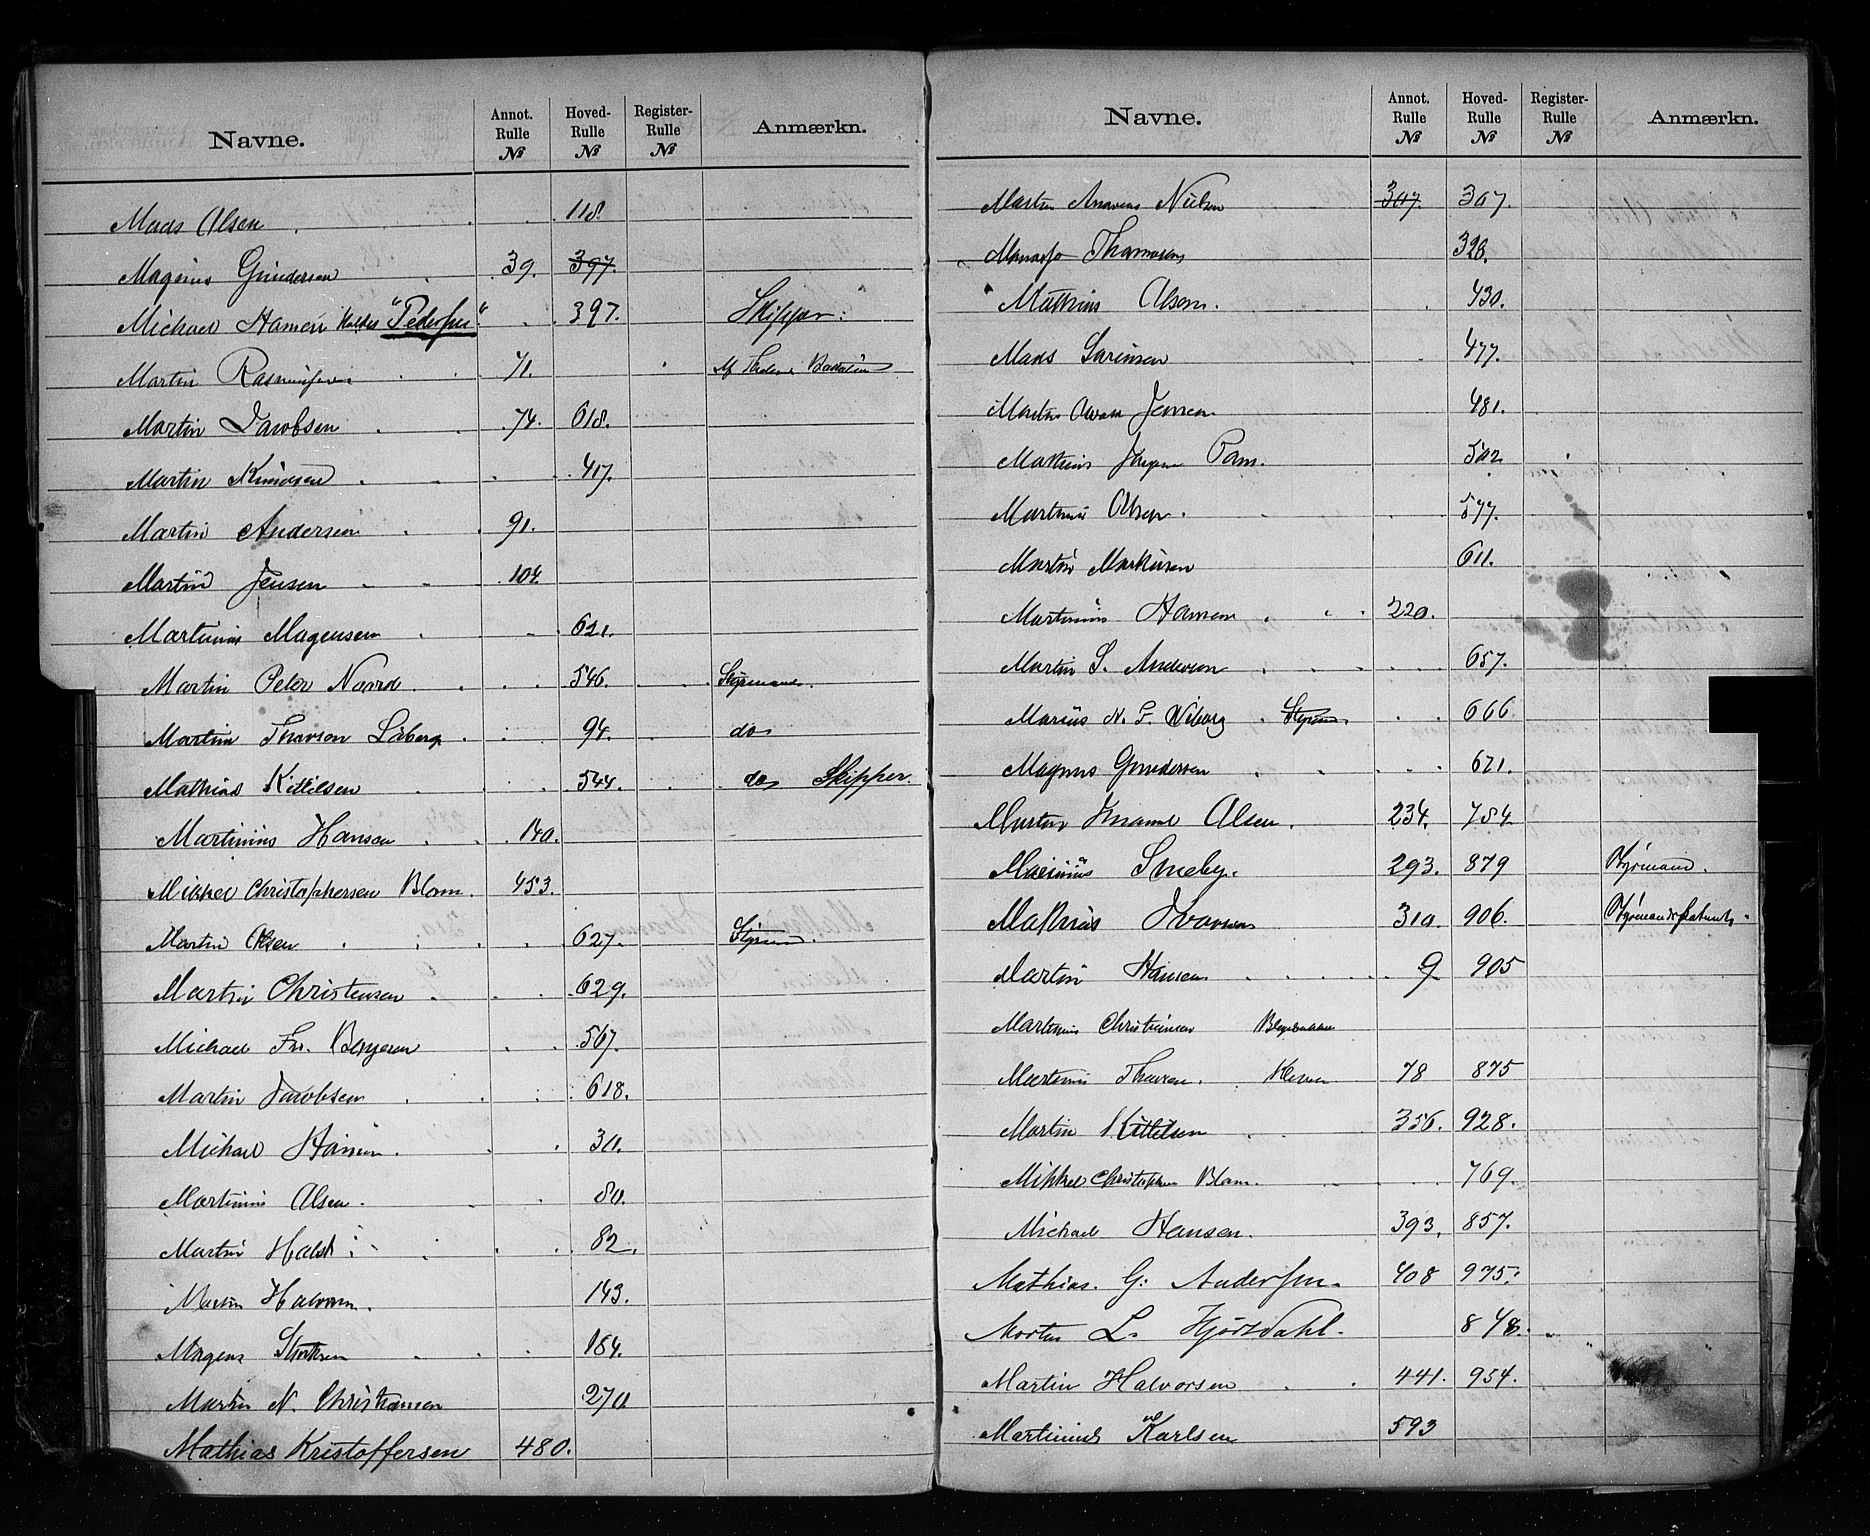 Navne. Annot. Rulle № Hoved-Rulle № Register-Rulle № Anmærkn.
Mads Olsen 118
Magnus Gundersen 39. 397.
Michael Hansen kaldes "Pedersen". 397. Skipper.
Martin Rasmussen 71.
Martin Jacobsen 74. 618.
Martin Knudsen 417.
Martin Andersen 91.
Martin Jensen 104
Martinius Mogensen 621.
Martin Peter Narrd 546. Styrmand.
Martin Thorsen Löberg 94. do
Mathias Kittilsen 544. do Skipper.
Martinius Hansen 140.
Mikkel Christophersen Blom. 453.
Martin Olsen 627. Styrmd.
Martin Christensen 629.
Michael Fr. Bergersen 567.
Martin Jacobsen 618.
Michael Hansen. 30.
Martinius Olsen. 80.
Martin Holst 82.
Martin Halvorsen. 143.
Mogens 184.
Martin N. Christiansen 270
Mathias Kristoffersen 480.
Navne. Annot. Rulle № Hoved-Rulle № Register-Rulle № Anmærkn.
Martin Nielsen 307. 307.
Thomassen 328.
Mathias Olsen. 430.
Mads Sörensen 477.
Martin Jensen 481.
Mathias Jörgen 502
Martinus Olsen. 577.
Martin Markusen 611.
Martinius Hansen 220.
Martin S. Andersen 657.
Marius N. F. Wiborg Styrmd. 666
Magnus Gundersen 671.
Morten Olsen. 234. 784
Smeby. 293. 879 Styrmand.
Mathias 310. 906.
Martin Hansen 9 905
Martinius Christiansen
Martinus Thorsen. 78 875
Martin Kittilsen 356. 928.
Mikkel Christophersen Blom. 769.
Michael Hansen. 393. 857.
Mathias. G. Andersen. 408 975.
Morten L. Hjörsdahl. 848.
Martin Halvorsen 441. 954.
Martinius Karlsen 593